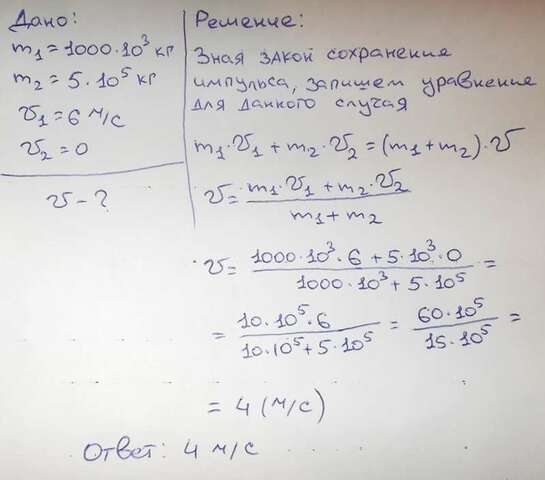 Дано:
m₁ = 1000·10³ кг
m₂ = 5·10⁵ кг
v₁ = 6 м/с
v₂ = 0
v – ?
Решение:
Зная закон сохранения
импульса, запишем уравнение
для данного случая
m₁·v₁ + m₂·v₂ = (m₁+m₂)·v
v = (m₁·v₁ + m₂·v₂) / (m₁ + m₂)
v = (1000·10³·6 + 5·10³·0) / (1000·10³ + 5·10⁵) =
= (10·10⁵·6) / (10·10⁵ + 5·10⁵) = (60·10⁵) / (15·10⁵) =
= 4 (м/с)
Ответ: 4 м/с